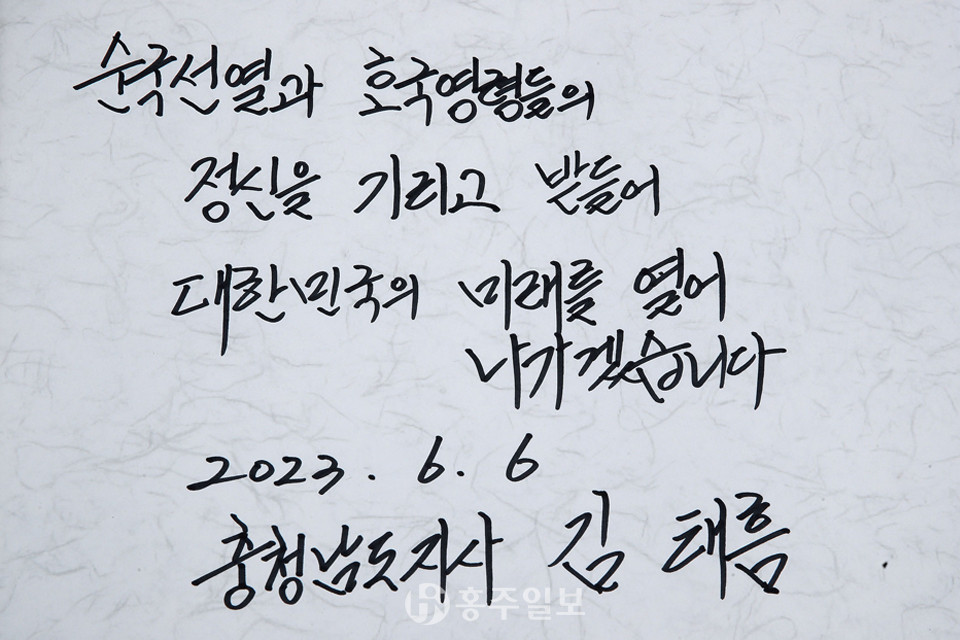 순국선열과 호국영령들의
정신을 기리고 받들어
대한민국의 미래를 열어
나가겠습니다
2023. 6. 6
충청남도지사 김 태흠
홍주일보